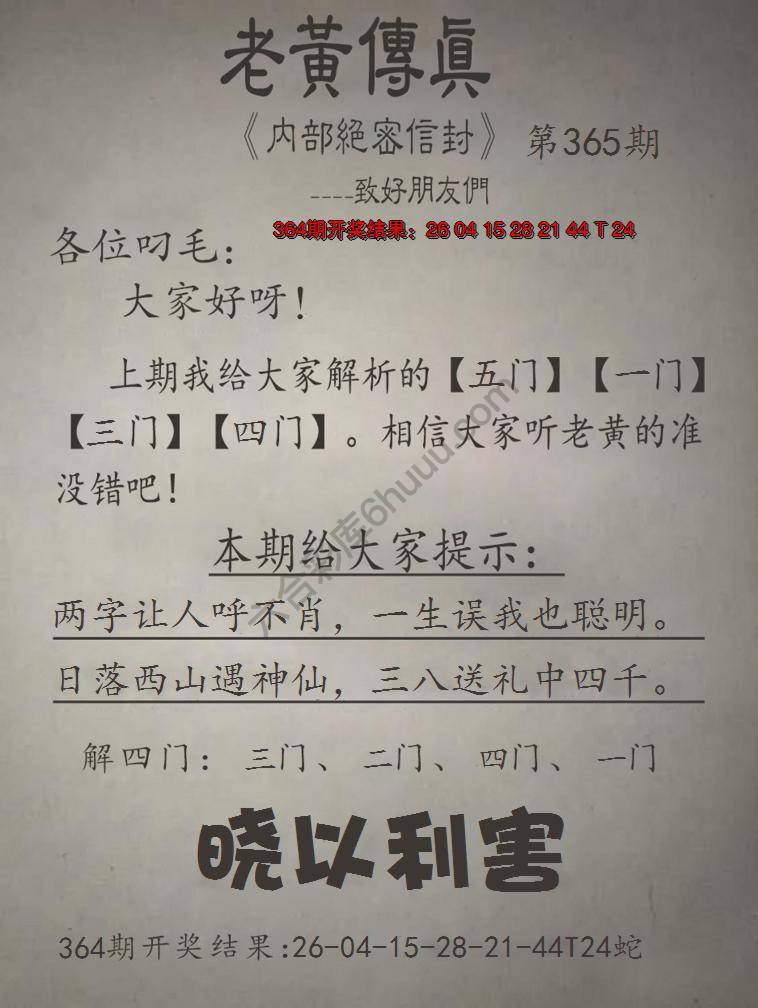 老黃傳眞
《內部絕密信封》 第365期
----致好朋友們
364期开奖结果：26 04 15 28 21 44 T 24
各位叼毛：
大家好呀！
上期我给大家解析的【五门】【一门】
【三门】【四门】。相信大家听老黄的准
没错吧！
本期给大家提示：
两字让人呼不肖，一生误我也聪明。
日落西山遇神仙，三八送礼中四千。
解四门：三门、二门、四门、一门
晓以利害
364期开奖结果:26-04-15-28-21-44T24蛇
六合彩库6huuu.com